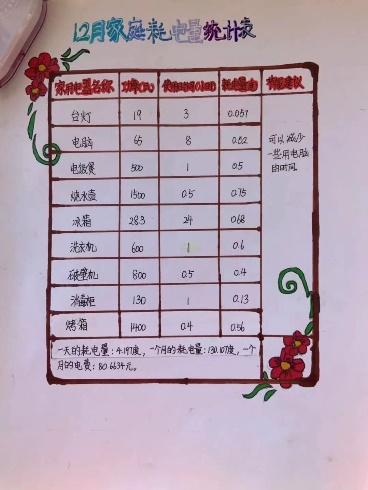 12月家庭耗电量统计表
家用电器名称 功率(W) 使用时间(小时) 耗电量(度) 节能建议
台灯 19 3 0.057
电脑 65 8 0.52 可以减少
一些用电脑
的时间。
电饭煲 500 1 0.5
烧水壶 1500 0.5 0.75
冰箱 28.3 24 0.68
洗衣机 600 1 0.6
破壁机 800 0.5 0.4
消毒柜 130 1 0.13
烤箱 1400 0.4 0.56
一天的耗电量:4.197度,一个月的耗电量:130.107度,一个
月的电费:80.6634元。